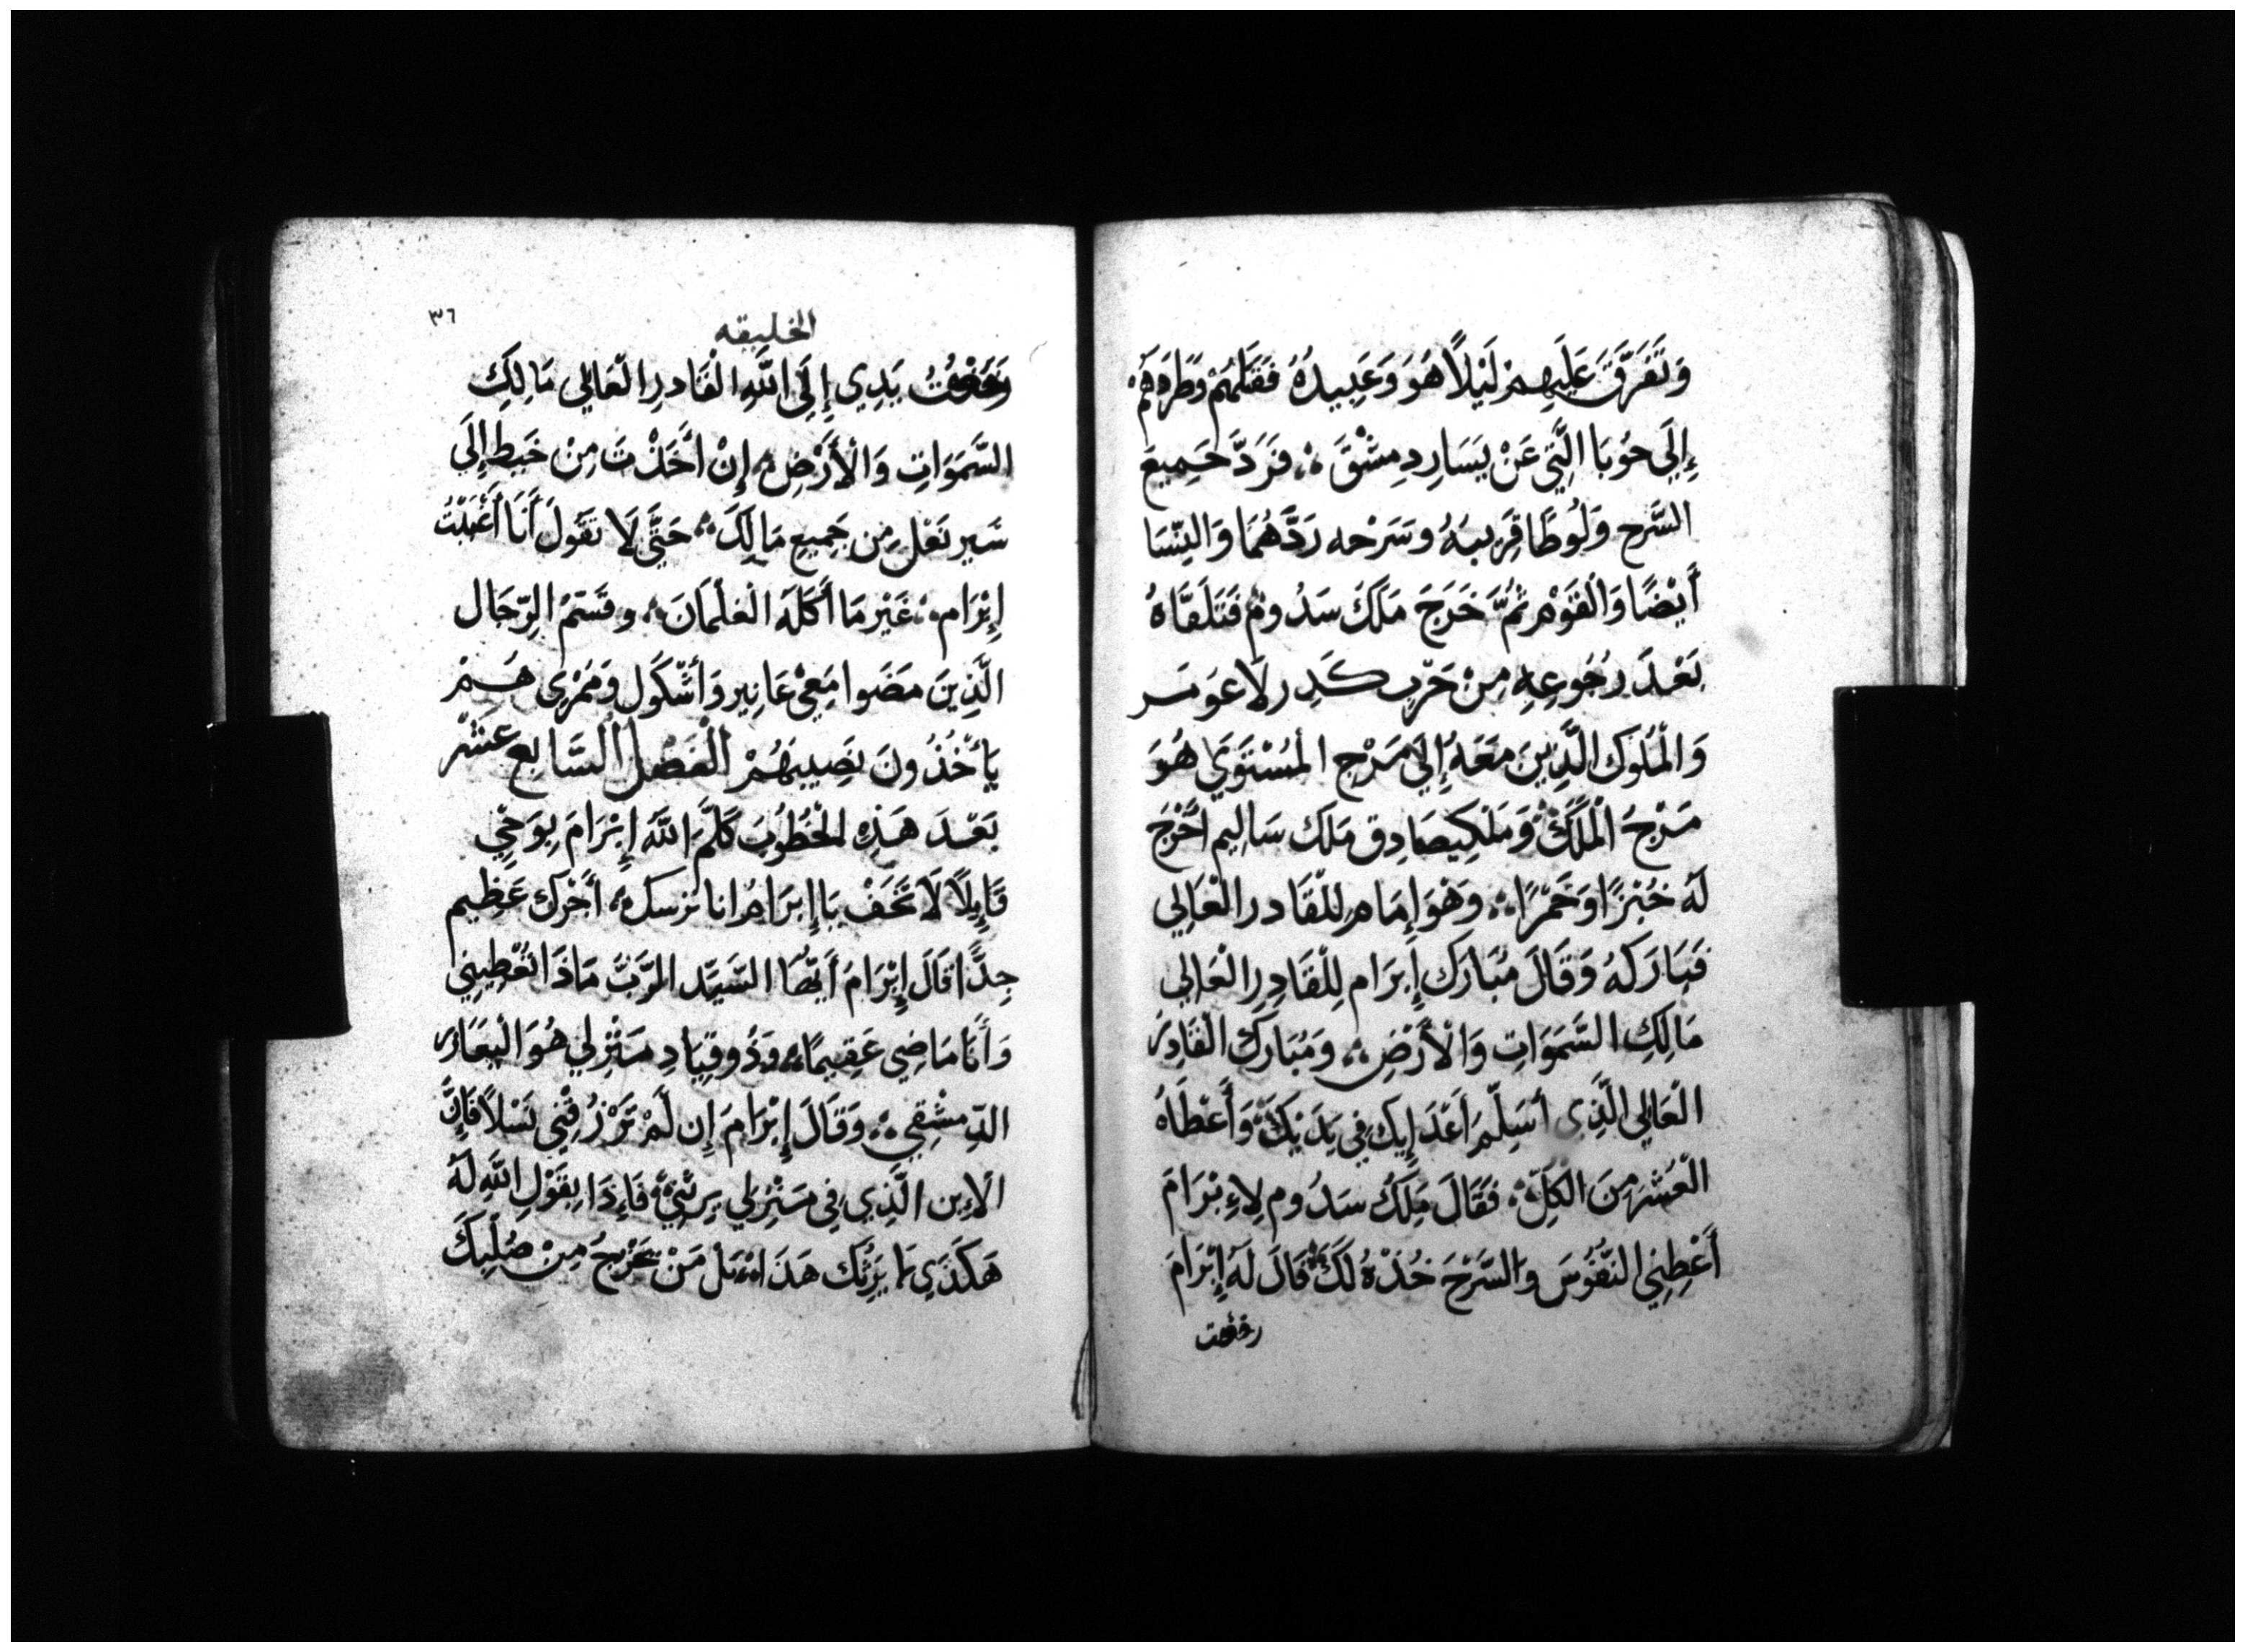 وَتَفَرَّقَ عَلَيهِمْ لَيْلاً هُوَ وَعَبِيدُهُ فَقَتَلَهُمْ وَطَرَدَهُمْ
إِلَى حُوبَا الَّتِي عَنْ يَسَارِ دِمِشْقَ ؞ فَرَدَّ جَمِيعَ
السَّرحِ وَلُوطًا قَرِيبَهُ وسَرْحه رَدَّهُمَا وَالنِّسَا
أَيْضًا وَالْقَوْم ثُمَّ خَرَجَ مَلَكَ سَدُوم فَتَلَقَّاهُ
بَعْدَ رُجُوعِهِ مِنْ حَرْبِ كَدِرلَاعَومَر
وَالْمُلُوك الَّذِينَ مَعَهُ إِلَى مَرْجِ المُسْتَوَي هُوَ
مَرْجُ الْمَلَكْ ؞ وَمَلْكِيصَادِق مَلَك سَالِيم أَخْرَجَ
لَهُ خُبْزًا وَخَمْرًا ؞ وَهْوَ إِمَام لِلْقَادرِ الْعَالِي
فَبَارَكَهُ وَقَالَ مُبَارَك إِبرَام لِلْقَادِرِ الْعَالِي
مَالِكِ السَّمَوَاتِ وَالْأَرْضِ ؞ وَمُبَارك الْقَادِرُ
الْعَالِي الَّذِي أسَلَّمَ أَعْدَايِكَ فِي يَدَيْكَ وَأَعْطَاهُ
الْعُشْرَ مِنَ الْكلِّ ؞ فَقَالَ مَلِكُ سَدُوم لِاءِبْرَامَ
أَعْطِنِي النُّفُوسَ وَالسَّرْحَ خُذْهُ لَكَ ؞ قَالَ لَهُ إِبْرَامَ
رفعت
الخليقه
٣٦
رَفَعْتُ يَدِي إِلَى اللَّهِ الْقَادرِ الْعَالِي مَالِكِ
السَّمَوَاتِ وَالْأَرْضِ ؞ إِنْ أَخَذْتَ مِنْ خَيطٍ إِلَى
سَيرِ نَعْلٍ مِن جَمِيعِ مَا لِكَ ؞ حَتَّى لَا تَقُولَ أَنَا أَغْنَيْتُ
إِبْرَام ؞ غَيْر مَا أَكَلَهُ الغلْمَانَ ؞ وقَسَمُ الرّجَال
الَّذِينَ مضَوا مَعِي عَانِير وَأَشْكُول وَمَمْرِي هَمْ
يَأْخُذُونَ نَصِيبَهُمْ الْفَصْل السَّابِع عَشَر
بَعْدَ هَذِهِ الْخُطُوبَ كَلَّمَ اللَّهَ إِبْرَامَ بِوَحْيٍ
قَايِلًا لَا تَخَفْ يَا إِبرَامُ انا ترسك ؞ أَجْرك عَظِيم
جِدًّا قَالَ إِبْرَامَ أَيُّهَا السَّيِّد الرَّبّ مَاذَا تُعْطِينِي
وَأَنَا مَاضِي عَقِيمًا ؞ وَذُو قِيَادِ مَنْزِلِي هُوَ الْيَعَازر
الدِّمِشْقِي ؞ وَقَالَ إِبْرَامَ إِن لَمْ تَرْزُقْنِي نَسْلًا فَإِنَّ
الِاءبن الَّذِي فِي مَنْزِلِي يَرِثُنِي فَإِذَا بِقَوْلِ اللَّهِ لَهُ
هَكَذِي لا يَرِثُكَ هَذَا ؞ بَلْ مَنْ يَخْرُجُ مِنْ صُلْبِكَ